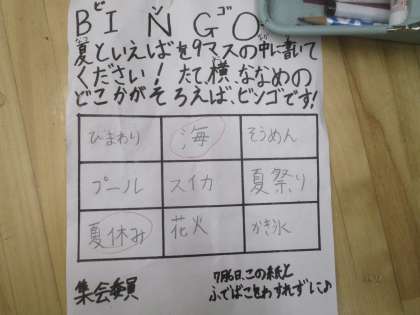 BINGO
ビンゴ
夏といえばを9マスの中に書いて
ください！たて、横、ななめの
どこかがそろえば、ビンゴです！
ひまわり 海 そうめん
プール スイカ 夏祭り
夏休み 花火 かき氷
集会委員
7月6日、この紙と
ふでばこをわすれずに♪